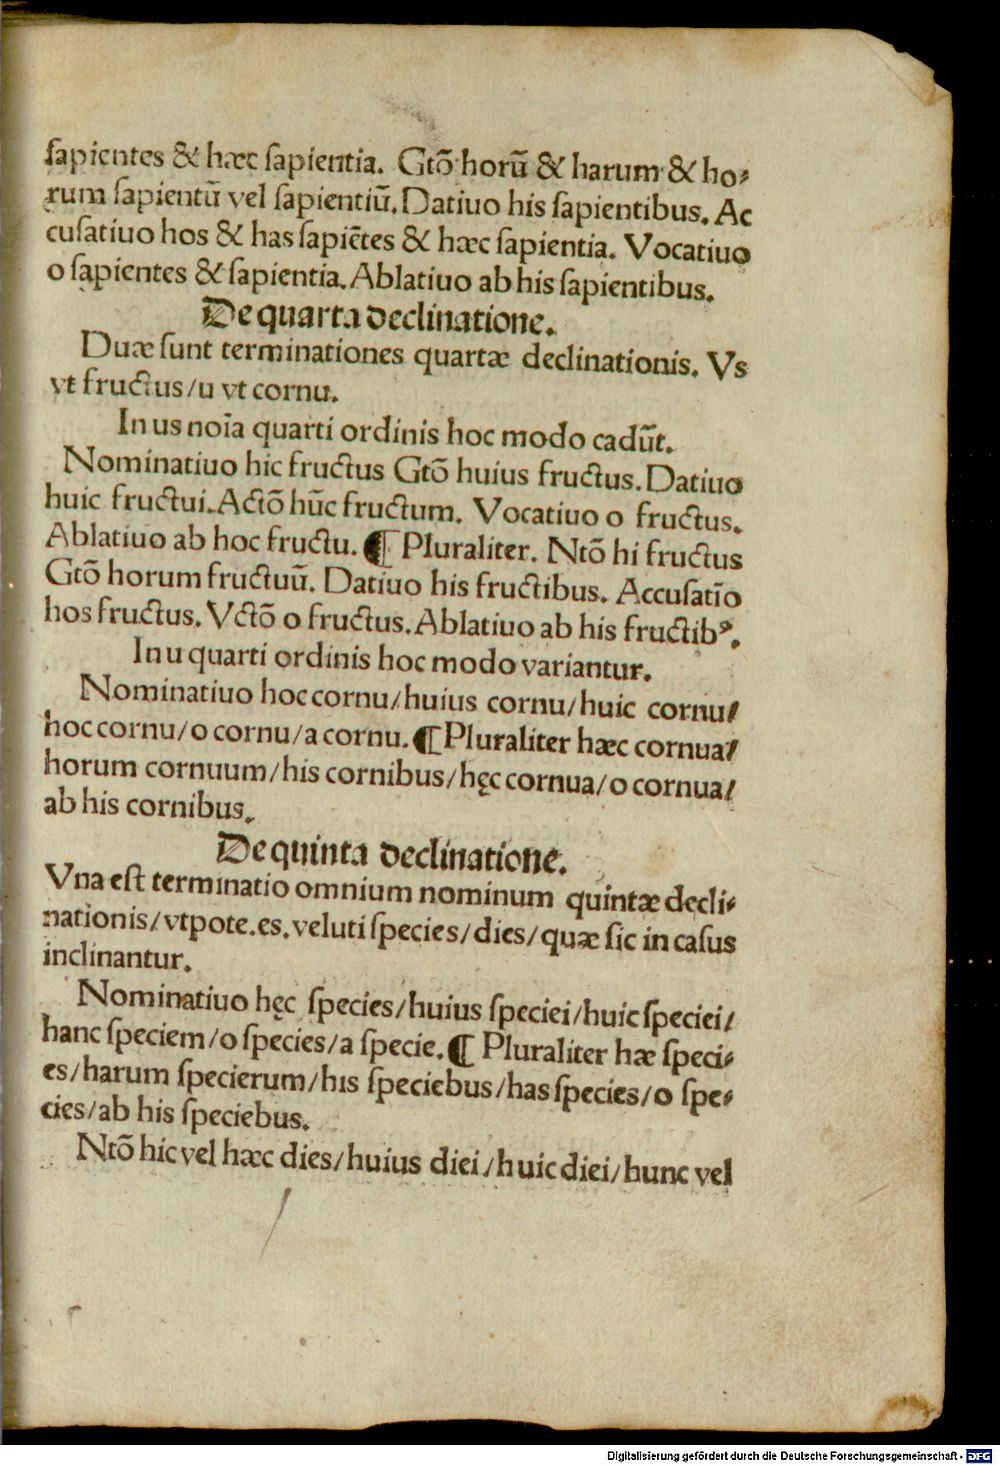 ſapientes & hæc ſapientia. Gtō horū & harum & ho⸗
rum ſapientū vel ſapientiū. Datiuo his ſapientibus. Ac
cuſatiuo hos & has ſapiētes & hæc ſapientia. Vocatiuo
o ſapientes & ſapientia. Ablatiuo ab his ſapientibus.
De quarta declinatione.
Duæ ſunt terminationes quartæ declinationis. Vs
vt fructus/u vt cornu.
In us noīa quarti ordinis hoc modo cadūt.
Nominatiuo hic fructus Gtō huius fructus. Datiuo
huic fructui. Actō hūc fructum. Vocatiuo o fructus.
Ablatiuo ab hoc fructu. ¶ Pluraliter. Ntō hi fructus
Gtō horum fructuū. Datiuo his fructibus. Accuſatīo
hos fructus. Vctō o fructus. Ablatiuo ab his fructibꝰ.
In u quarti ordinis hoc modo variantur.
Nominatiuo hoc cornu/huius cornu/huic cornu/
hoc cornu/o cornu/a cornu. ¶ Pluraliter hæc cornua/
horum cornuum/his cornibus/hęc cornua/o cornua/
ab his cornibus.
De quinta declinatione.
Vna eſt terminatio omnium nominum quintæ decli⸗
nationis/vtpote.es.veluti ſpecies/dies/quæ ſic in caſus
inclinantur.
Nominatiuo hęc ſpecies/huius ſpeciei/huic ſpeciei/
hanc ſpeciem/o ſpecies/a ſpecie. ¶ Pluraliter hæ ſpeci⸗
es/harum ſpecierum/his ſpeciebus/has ſpecies/o ſpe⸗
cies/ab his ſpeciebus.
Ntō hic vel hæc dies/huius diei/huic diei/hunc vel
Digitalisierung gefördert durch die Deutsche Forschungsgemeinschaft - DFG